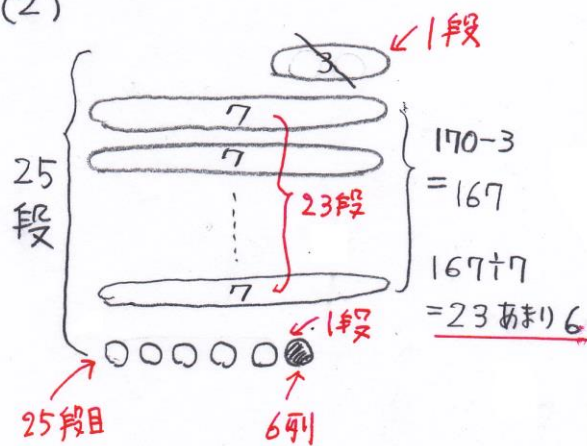 (2)
1段
3
7
7
23段
25
段
7
170-3
=167
167÷7
=23あまり6
1段
25段目
6列